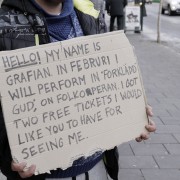 HELLO! MY NAME IS
GRAFIAN. IN FEBRURI I
WILL PERFORM IN "FÖRKLÄDD
GUD", ON FOLKOPERAN. I GOT
TWO FREE TICKETS I WOULD
LIKE YOU TO HAVE FOR
SEEING ME.